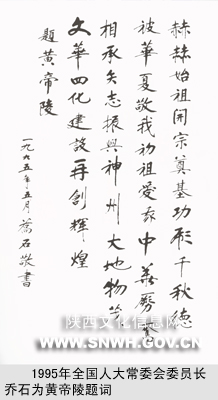 赫赫始祖开宗奠基功彪千秋德
被华夏敬我初祖爱我中华励
相承矢志振兴神州大地物
文华四化建设再创辉煌
题黄帝陵
一九九五年五月 乔石敬书
陕西文化信息网
www.snwh.gov.cn
1995年全国人大常委会委员长
乔石为黄帝陵题词